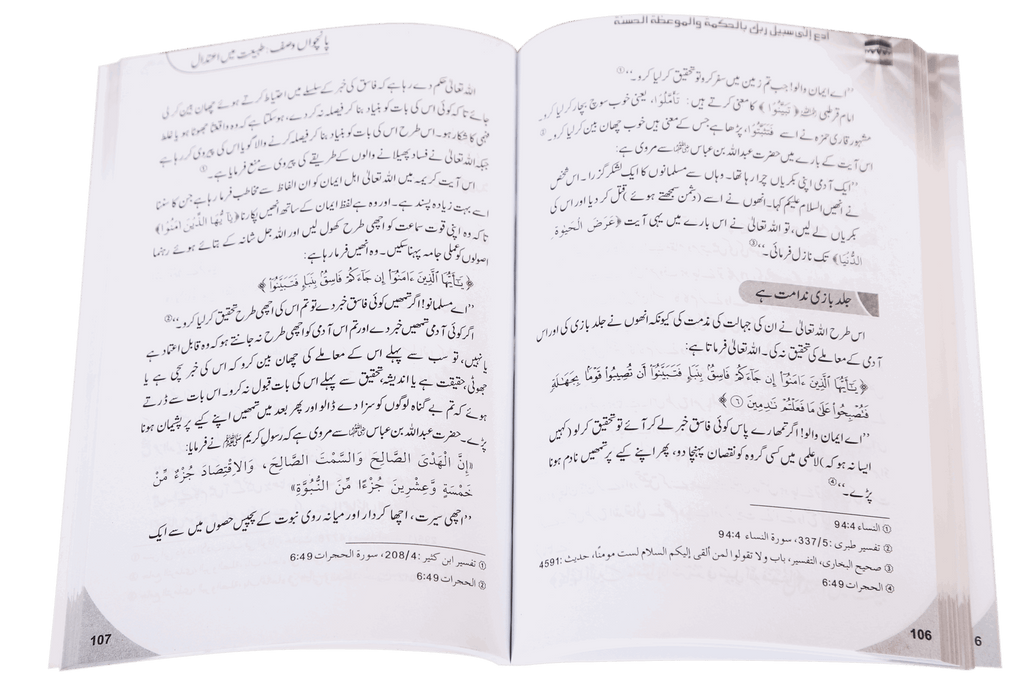 ادع إلى سبيل ربك بالحكمة والموعظة الحسنة
’’اے ایمان والو! جب تم زمین میں سفر کرو تو تحقیق کر لیا کرو۔‘‘①
امام قرطبی رحمہ اللہ ﴿تَبَيَّنُوا﴾ کا معنی کرتے ہیں: تَأَمَّلُوا، یعنی خوب سوچ بچار کر لیا کرو
مشہور قاری حمزہ نے اسے فَتَثَبَّتُوا، پڑھا ہے جس کے معنی ہیں خوب چھان بین کر لیا کرو۔②
اس آیت کے بارے میں حضرت عبداللہ بن عباس رضی اللہ عنہما سے مروی ہے:
’’ایک آدمی اپنی بکریاں چرا رہا تھا۔ وہاں سے مسلمانوں کا ایک لشکر گزرا۔ اس شخص
نے انھیں السلام علیکم کہا۔ انھوں نے اسے (دشمن سمجھتے ہوئے) قتل کر دیا اور اس کی
بکریاں لے لیں، تو اللہ تعالیٰ نے اس بارے میں یہی آیت ﴿عَرَضَ الْحَيٰوةِ
الدُّنْيَا﴾ تک نازل فرمائی۔‘‘③
جلد بازی ندامت ہے
اس طرح اللہ تعالیٰ نے ان کی جہالت کی مذمت کی کیونکہ انھوں نے جلد بازی کی اور اس
آدمی کے معاملے کی تحقیق نہ کی۔ اللہ تعالیٰ فرماتا ہے:
﴿يَٰٓأَيُّهَا ٱلَّذِينَ ءَامَنُوٓا۟ إِن جَآءَكُمْ فَاسِقٌۢ بِنَبَإٍ فَتَبَيَّنُوٓا۟ أَن تُصِيبُوا۟ قَوْمًۢا بِجَهَٰلَةٍ
فَتُصْبِحُوا۟ عَلَىٰ مَا فَعَلْتُمْ نَٰدِمِينَ ﴿٦﴾﴾
’’اے ایمان والو! اگر تمھارے پاس کوئی فاسق خبر لے کر آئے تو تحقیق کر لو (کہیں
ایسا نہ ہو کہ) لاعلمی میں کسی گروہ کو نقصان پہنچا دو، پھر اپنے کیے پر تمھیں نادم ہونا
پڑے۔‘‘④
① النساء 94:4
② تفسیر طبری: 337/5، سورۃ النساء 94:4
③ صحیح البخاری، التفسیر، باب ولا تقولوا لمن ألقى إليكم السلام لست مومنًا، حدیث: 4591
④ الحجرات 6:49
106
6
پانچواں وصف: طبیعت میں اعتدال
اللہ تعالیٰ حکم دے رہا ہے کہ فاسق کی خبر کے سلسلے میں احتیاط کرتے ہوئے چھان بین کر لی
جائے تاکہ کوئی اس کی بات کو بنیاد بنا کر فیصلہ نہ کر دے، ہو سکتا ہے کہ وہ واقعتاً جھوٹا ہو یا غلط
فہمی کا شکار ہو۔ اس طرح اس کی بات کو بنیاد بنا کر فیصلہ کرنے والا گویا اس کی پیروی کر رہا ہے
جبکہ اللہ تعالیٰ نے فساد پھیلانے والوں کے طریقے کی پیروی سے منع فرمایا ہے۔①
اس آیت کریمہ میں اللہ تعالیٰ اہل ایمان کو ان الفاظ سے مخاطب فرما رہا ہے جن کا سننا
اسے بہت زیادہ پسند ہے۔ اور وہ ہے لفظ ایمان کے ساتھ انھیں پکارنا ﴿يٰٓاَيُّهَا الَّذِيْنَ اٰمَنُوْا﴾
تاکہ وہ اپنی قوت سماعت کو اچھی طرح کھول لیں اور اللہ جل شانہ کے بتائے ہوئے رہنما
اصولوں کو عملی جامہ پہنا سکیں۔ وہ انھیں فرما رہا ہے:
﴿يَٰٓأَيُّهَا ٱلَّذِينَ ءَامَنُوٓا۟ إِن جَآءَكُمْ فَاسِقٌۢ بِنَبَإٍ فَتَبَيَّنُوٓا۟﴾
’’اے مسلمانو! اگر تمھیں کوئی فاسق خبر دے تو تم اس کی اچھی طرح تحقیق کر لیا کرو۔‘‘②
اگر کوئی آدمی تمھیں خبر دے اور تم اس آدمی کو اچھی طرح نہ جانتے ہو کہ وہ قابل اعتماد ہے
یا نہیں، تو سب سے پہلے اس کے معاملے کی چھان بین کرو کہ اس کی خبر سچی ہے یا
جھوٹی، حقیقت ہے یا اندیشہ، تحقیق سے پہلے اس کی بات قبول نہ کرو۔ اس بات سے ڈرتے
ہوئے کہ تم بے گناہ لوگوں کو سزا دے ڈالو اور پھر بعد میں تمھیں اپنے کیے پر پشیمان ہونا
پڑے۔ حضرت عبداللہ بن عباس رضی اللہ عنہما سے مروی ہے کہ رسول کریم ﷺ نے فرمایا:
«إِنَّ الْهَدْيَ الصَّالِحَ وَالسَّمْتَ الصَّالِحَ، وَالِاقْتِصَادَ جُزْءٌ مِّنْ
خَمْسَةٍ وَّعِشْرِينَ جُزْءًا مِّنَ النُّبُوَّةِ»
’’اچھی سیرت، اچھا کردار اور میانہ روی نبوت کے پچیس حصوں میں سے ایک
① تفسیر ابن کثیر: 208/4، سورۃ الحجرات 6:49
② الحجرات 6:49
107